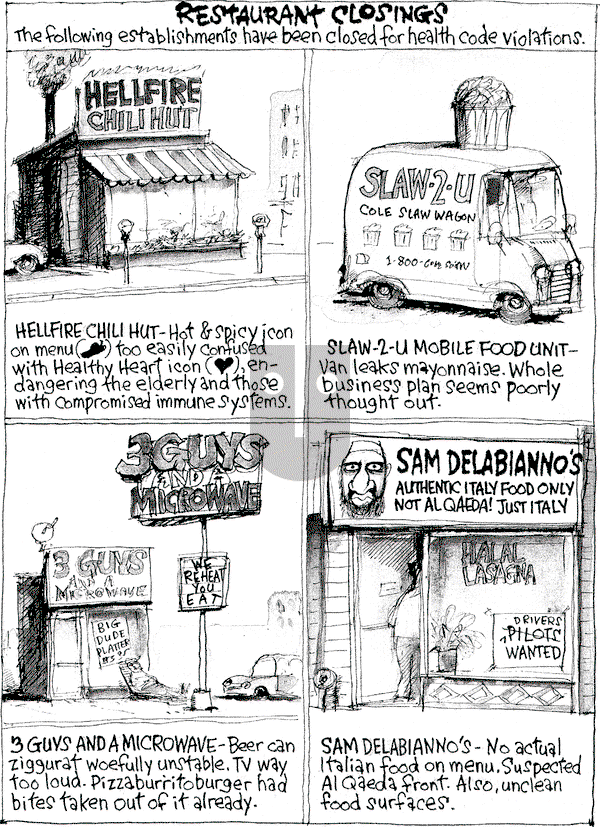 RESTAURANT CLOSINGS
The following establishments have been closed for health code violations.
HELLFIRE
CHILI HUT
HELLFIRE CHILI HUT - Hot & spicy icon
on menu ( ) too easily confused
with Healthy Heart icon ( ), en-
dangering the elderly and those
with compromised immune systems.
SLAW-2-U
COLE SLAW WAGON
1-800-
SLAW-2-U MOBILE FOOD UNIT-
Van leaks mayonnaise. Whole
business plan seems poorly
thought out.
3 GUYS
AND A
MICROWAVE
3 GUYS
AND A
MICROWAVE
WE
REHEAT
YOU
EAT
BIG
DUDE
PLATTER
3 GUYS AND A MICROWAVE - Beer can
ziggurat woefully unstable. TV way
too loud. Pizzaburritoburger had
bites taken out of it already.
SAM DELABIANNO'S
AUTHENTIC ITALY FOOD ONLY
NOT AL QAEDA! JUST ITALY
HALAL
LASAGNA
DRIVERS
PILOTS
WANTED
SAM DELABIANNO'S - No actual
Italian food on menu. Suspected
Al Qaeda front. Also, unclean
food surfaces.